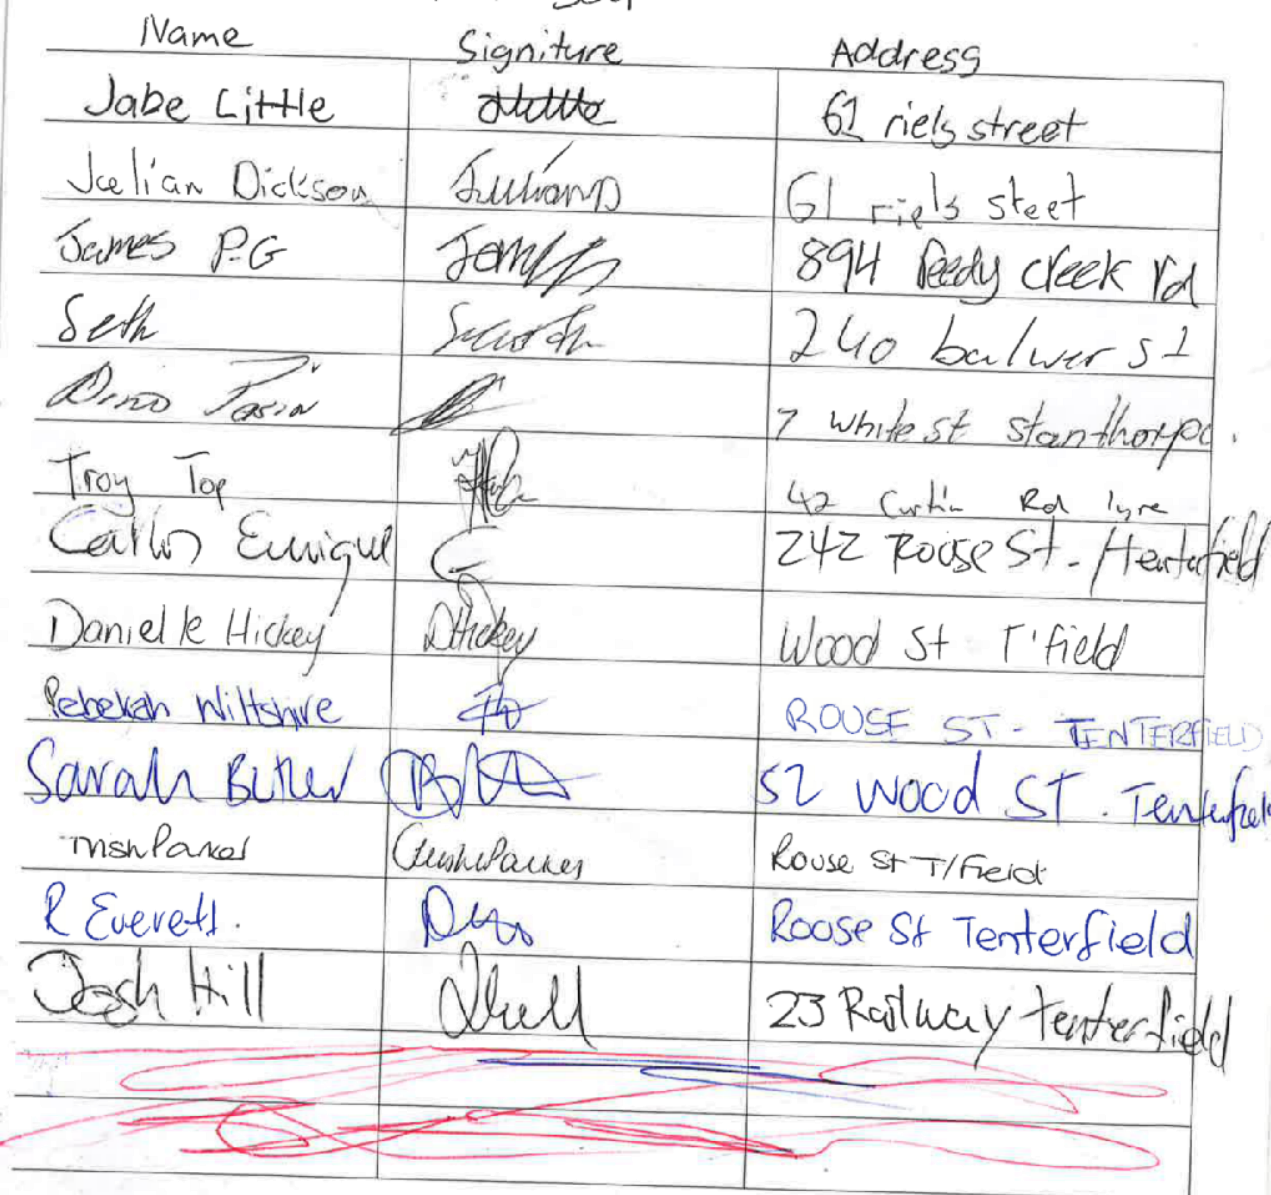 Name Signiture Address
Jabe Little 61 riels street
Julian Dickson JulianD 61 riels steet
James P-G 894 Reedy creek rd
Seth 240 bulwer st
Dino 7 White st Stanthorpe.
Troy Top 42 Curtin Rd
Carlos Enrique 242 Roose St. /tenterfield
Danielle Hickey DHickey Wood St T'field
Rebekah Wiltshire ROUSE ST- TENTERFIELD
Sarah Butler 52 Wood ST. Tenterfield
Trish Parker Trish Parker Rouse St T/Field
R Everett. Roose St Tenterfield
Josh Hill 23 Railway tenterfield